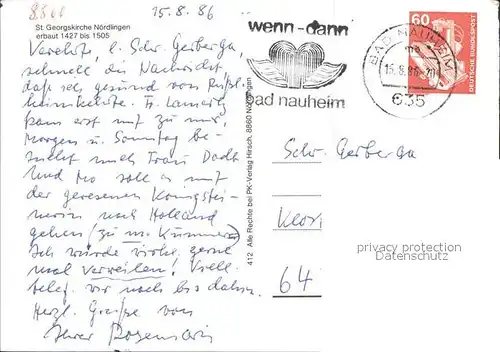 15.8.86
St. Georgskirche Nördlingen
erbaut 1427 bis 1505
Schw. Gerberga,
schnell die Nachricht
daß ich gesund von
kann erst zu mir,
Morgen u. Sonntag be-
sucht mich Frau
und Mo soll es mit
der genesenen Königstei-
nerin nach Holland
gehen (zu m. Kummer)
Ich würde wohl gerne
mal verweilen! Viell.
wir noch bis dahin.
Herzl. Grüße von
Ihrer Rosemarie
412 Alle Rechte bei PK-Verlag Hirsch, 8860 Nördlingen
wenn-dann
bad nauheim
BAD NAUHEIM
15.8.86-20
635
60
DEUTSCHE BUNDESPOST
Schw. Gerberga
64
privacy protection
Datenschutz